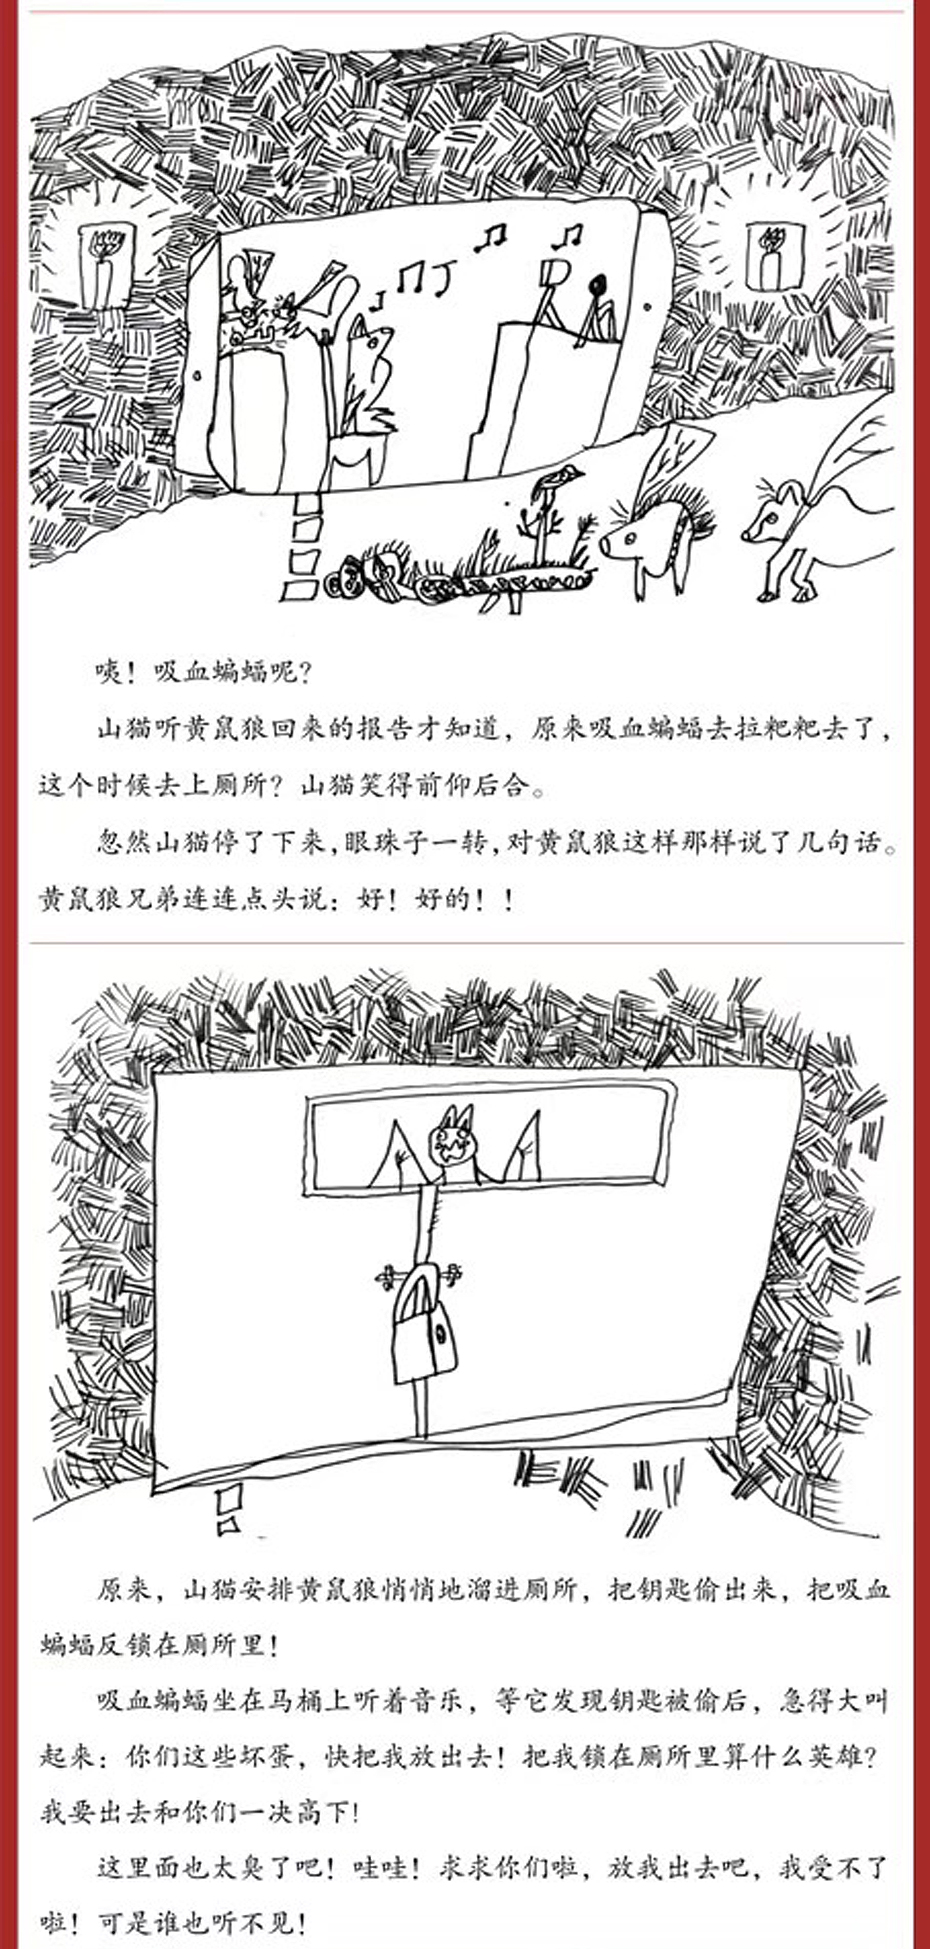 咦！吸血蝙蝠呢？
山猫听黄鼠狼回来的报告才知道，原来吸血蝙蝠去拉粑粑去了，
这个时候去上厕所？山猫笑得前仰后合。
忽然山猫停了下来，眼珠子一转，对黄鼠狼这样那样说了几句话。
黄鼠狼兄弟连连点头说：好！好的！！
原来，山猫安排黄鼠狼悄悄地溜进厕所，把钥匙偷出来，把吸血
蝙蝠反锁在厕所里！
吸血蝙蝠坐在马桶上听着音乐，等它发现钥匙被偷后，急得大叫
起来：你们这些坏蛋，快把我放出去！把我锁在厕所里算什么英雄？
我要出去和你们一决高下！
这里面也太臭了吧！哇哇！求求你们啦，放我出去吧，我受不了
啦！可是谁也听不见！